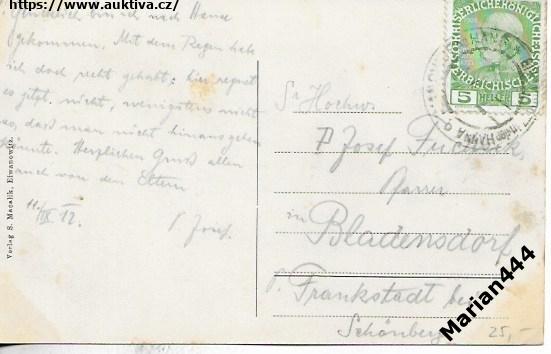 https://www.auktiva.cz/
Glücklich bin ich nach Hause
gekommen. Mit dem Regen hab
ich doch recht gehabt; hier regnet
es jetzt nicht, wenigstens nicht
so, daß man nicht hinausgehen
könnte. Herzlichen Gruß allen
auch von den Eltern
11./IX 12.
P. Josef.
Verlag S. Mačalík, Eiwanowitz.
KAISERLICHE KÖNIGLICHE
ÖSTERREICHISCHE
5 HELLER 5
HANNA
Sr Hochw.
P Josef
Pfarrer
in
Bladensdorf
p. Frankstadt bei
Schönberg
25,-
Marian444